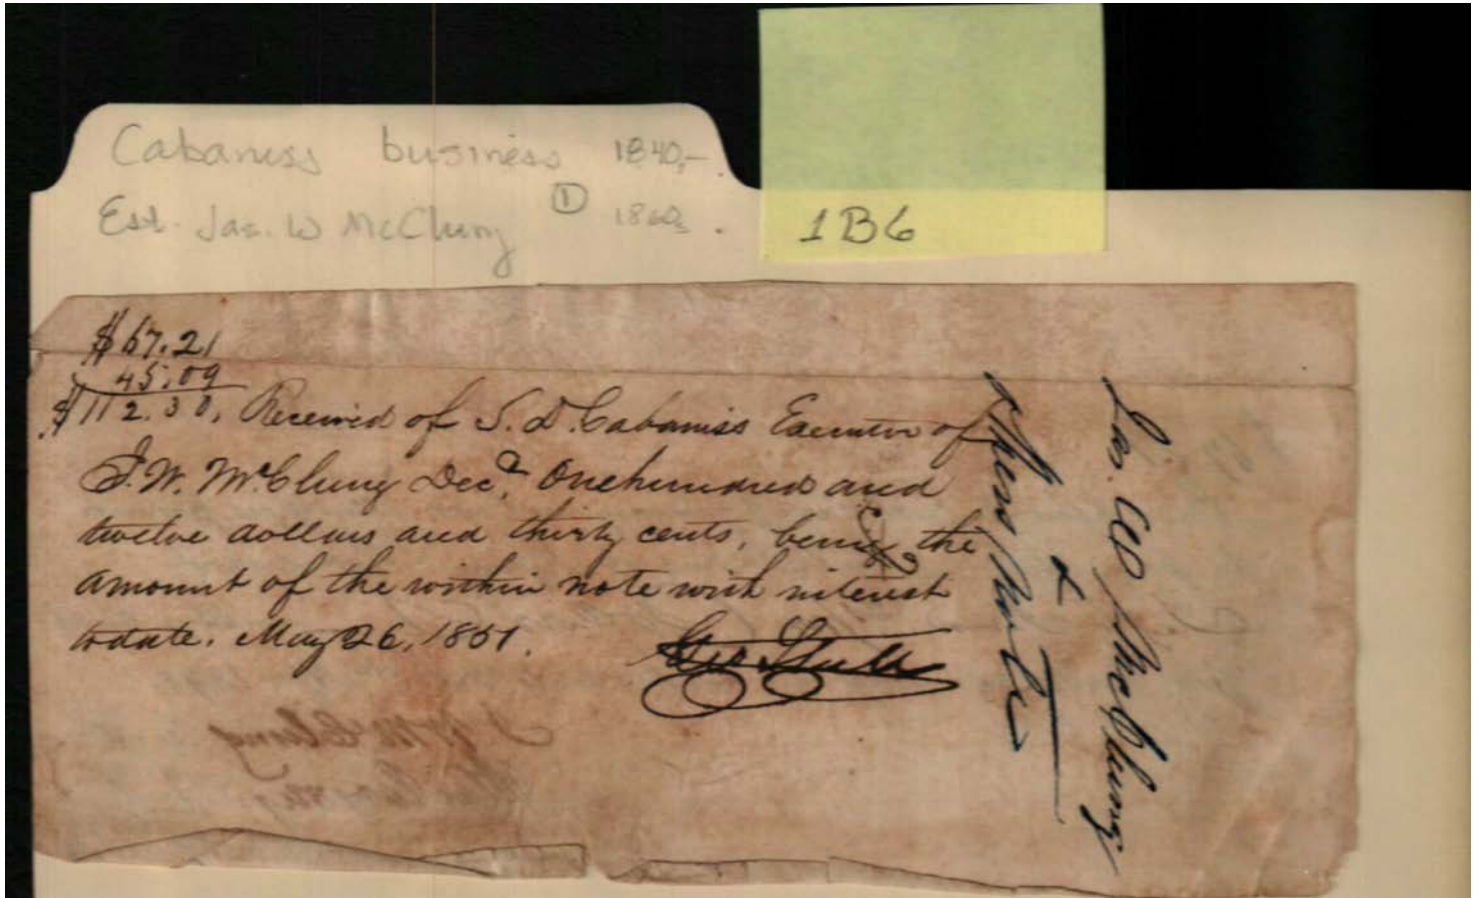 Cabaniss business 1840,-
Est. Jas. W McClung ① 1860s.
1B6
$67.21
45.09
$112.30. Received of S. D. Cabaniss Executor of
J. W. McClung Decd, One hundred and
twelve dollars and thirty cents, being the
amount of the within note with interest
to date. May 26, 1851.
Geo
Jas. McClung
&
note
J W McClung